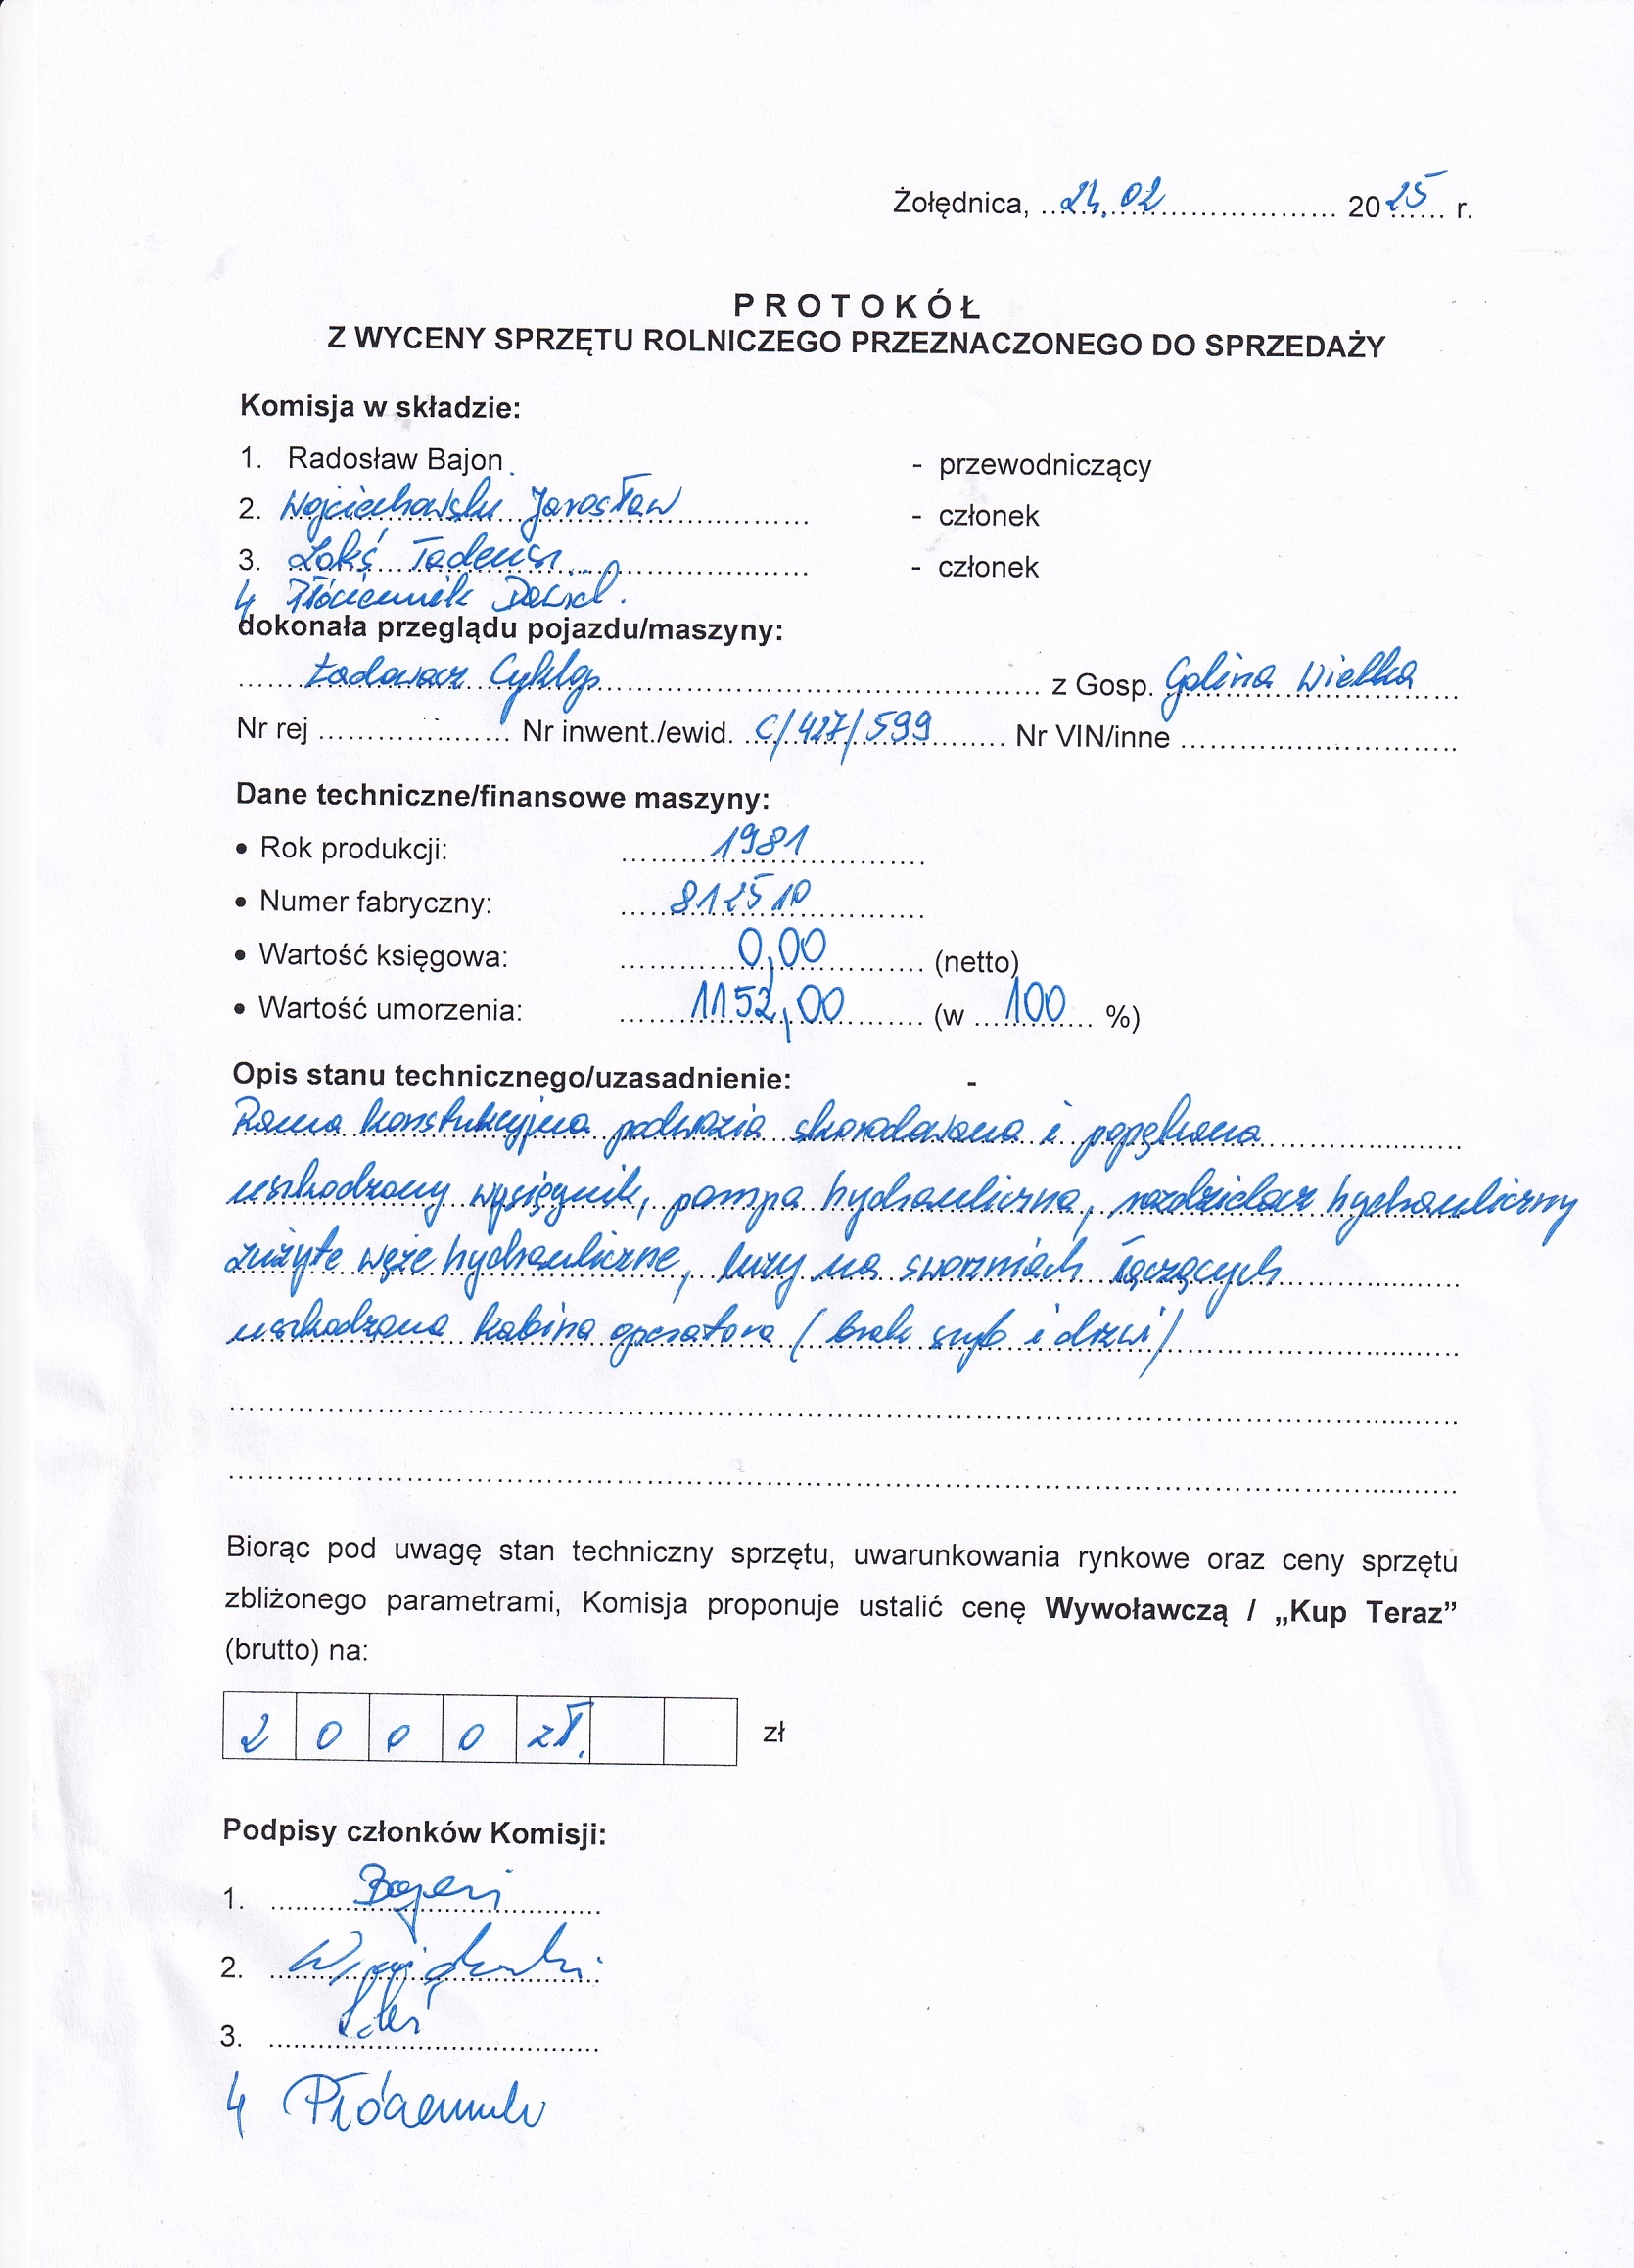 Żołędnica, 24.02 2025 r.
PROTOKÓŁ
Z WYCENY SPRZĘTU ROLNICZEGO PRZEZNACZONEGO DO SPRZEDAŻY
Komisja w składzie:
1. Radosław Bajon - przewodniczący
2. Wojciechowski Jarosław - członek
3. Tadeusz - członek
4 Płóciennik Dawid.
dokonała przeglądu pojazdu/maszyny:
Ładowacz Cyklop z Gosp. Golina Wielka
Nr rej Nr inwent./ewid. C/427/599 Nr VIN/inne
Dane techniczne/finansowe maszyny:
• Rok produkcji: 1981
• Numer fabryczny: 812510
• Wartość księgowa: 0,00 (netto)
• Wartość umorzenia: 1152,00 (w 100 %)
Opis stanu technicznego/uzasadnienie: -
Rama konstukcyjna podwozia skorodowana i popękana
uszkodzony wysięgnik, pompa hydrauliczna, rozdzielacz hydrauliczny
zużyte węże hydrauliczne, luzy na sworzniach łączących
uszkodzona kabina operatora (brak szyb i drzwi)
Biorąc pod uwagę stan techniczny sprzętu, uwarunkowania rynkowe oraz ceny sprzętu
zbliżonego parametrami, Komisja proponuje ustalić cenę Wywoławczą / „Kup Teraz”
(brutto) na:
2 0 0 0 zł. zł
Podpisy członków Komisji:
1.
2.
3.
4 Płóciennik